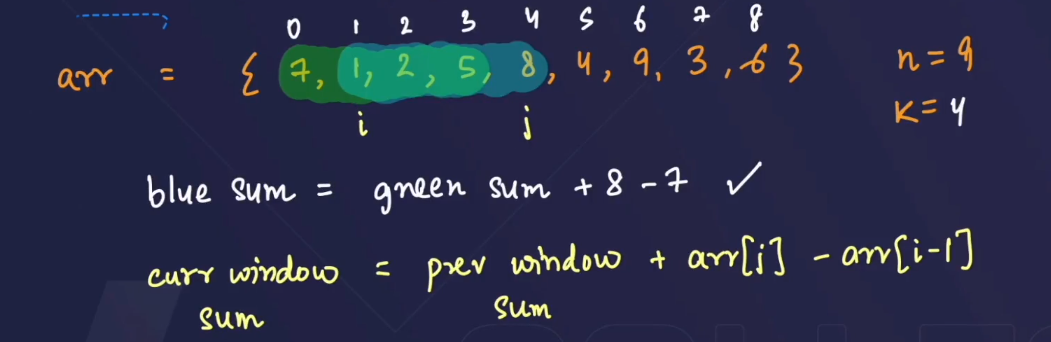 0 1 2 3 4 5 6 7 8
arr = { 7, 1, 2, 5, 8, 4, 9, 3, 6 } n = 9
i j k = 4
blue sum = green sum + 8 - 7 ✓
curr window = prev window + arr[j] - arr[i-1]
sum sum